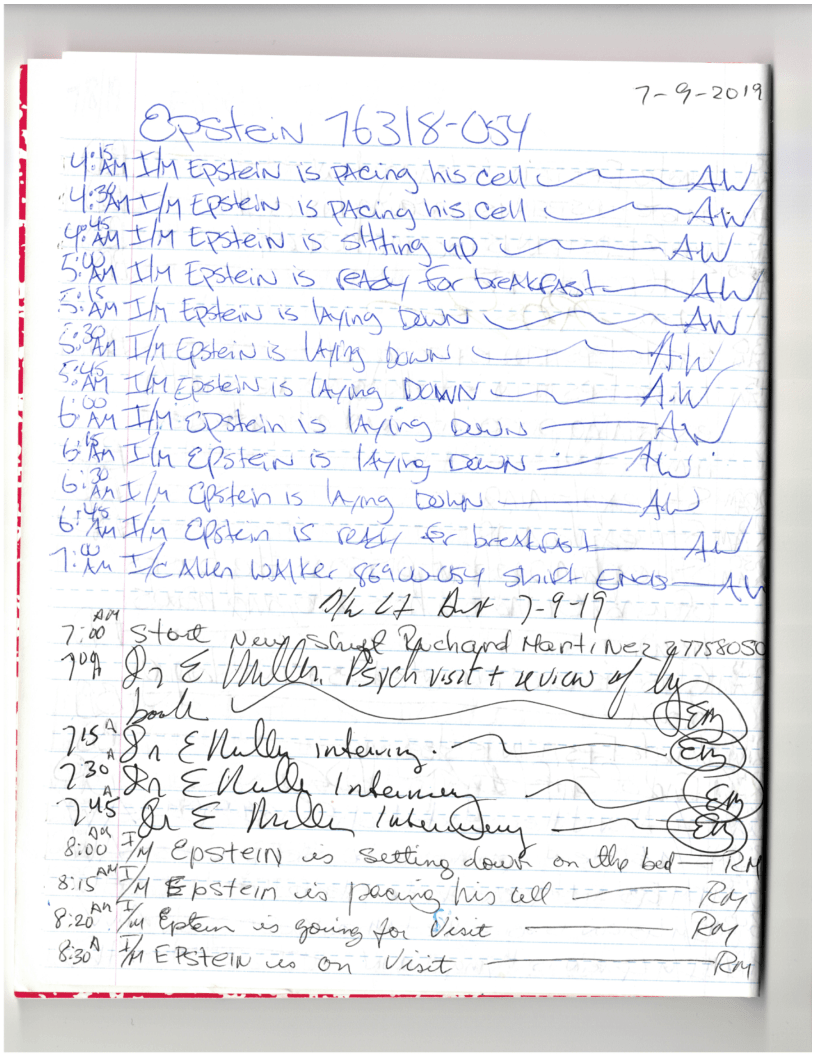 7-9-2019
Epstein 76318-054
4:15 AM I/M Epstein is pacing his cell AW
4:30 AM I/M Epstein is pacing his cell AW
4:45 AM I/M Epstein is sitting up AW
5:00 AM I/M Epstein is ready for breakfast AW
5:15 AM I/M Epstein is laying down AW
5:30 AM I/M Epstein is laying down AW
5:45 AM I/M Epstein is laying down AW
6:00 AM I/M Epstein is laying down AW
6:15 AM I/M Epstein is laying down AW
6:30 AM I/M Epstein is laying down AW
6:45 AM I/M Epstein is ready for breakfast AW
7:00 AM I/C Allen Walker 86900-054 Shift Ends AW
7-9-19
7:00 AM Start New Shift Richard Martinez 27758050
7 00 A Dr E Miller. Psych visit + review of log
book EM
7 15 A Dr E Miller interving. EM
7 30 A Dr E Miller Interviewing EM
7 45 A Dr E Miller Interviewing EM
8:00 AM I/M Epstein is setting down on the bed RM
8:15 AM I/M Epstein is pacing his cell RM
8:20 AM I/M Eptein is going for Visit RM
8:30 A I/M Epstein is on Visit RM